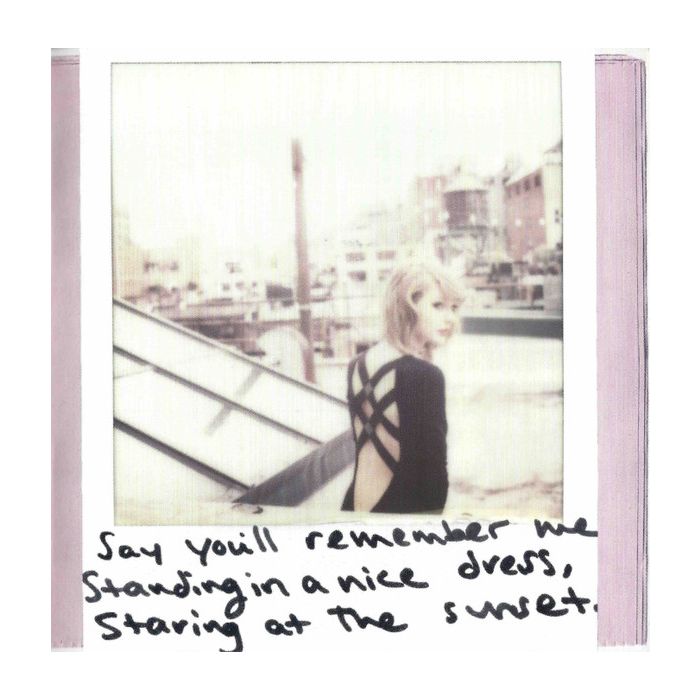 Say you'll remember me
Standing in a nice dress,
Staring at the sunset.